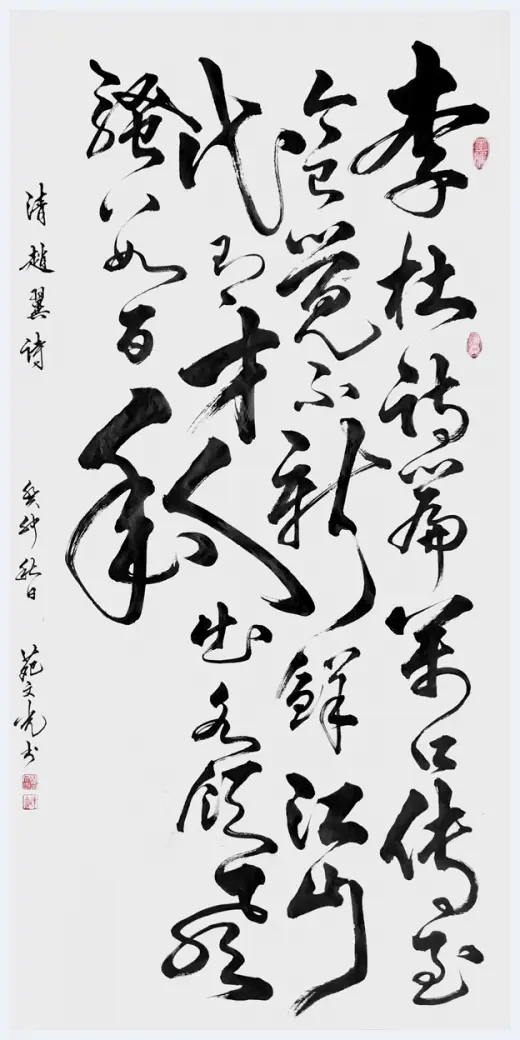 李杜诗篇万口传至
今已觉不新鲜江山
代有才人出各领风
骚数百年
清趙翼诗
癸卯秋日
苑文光书